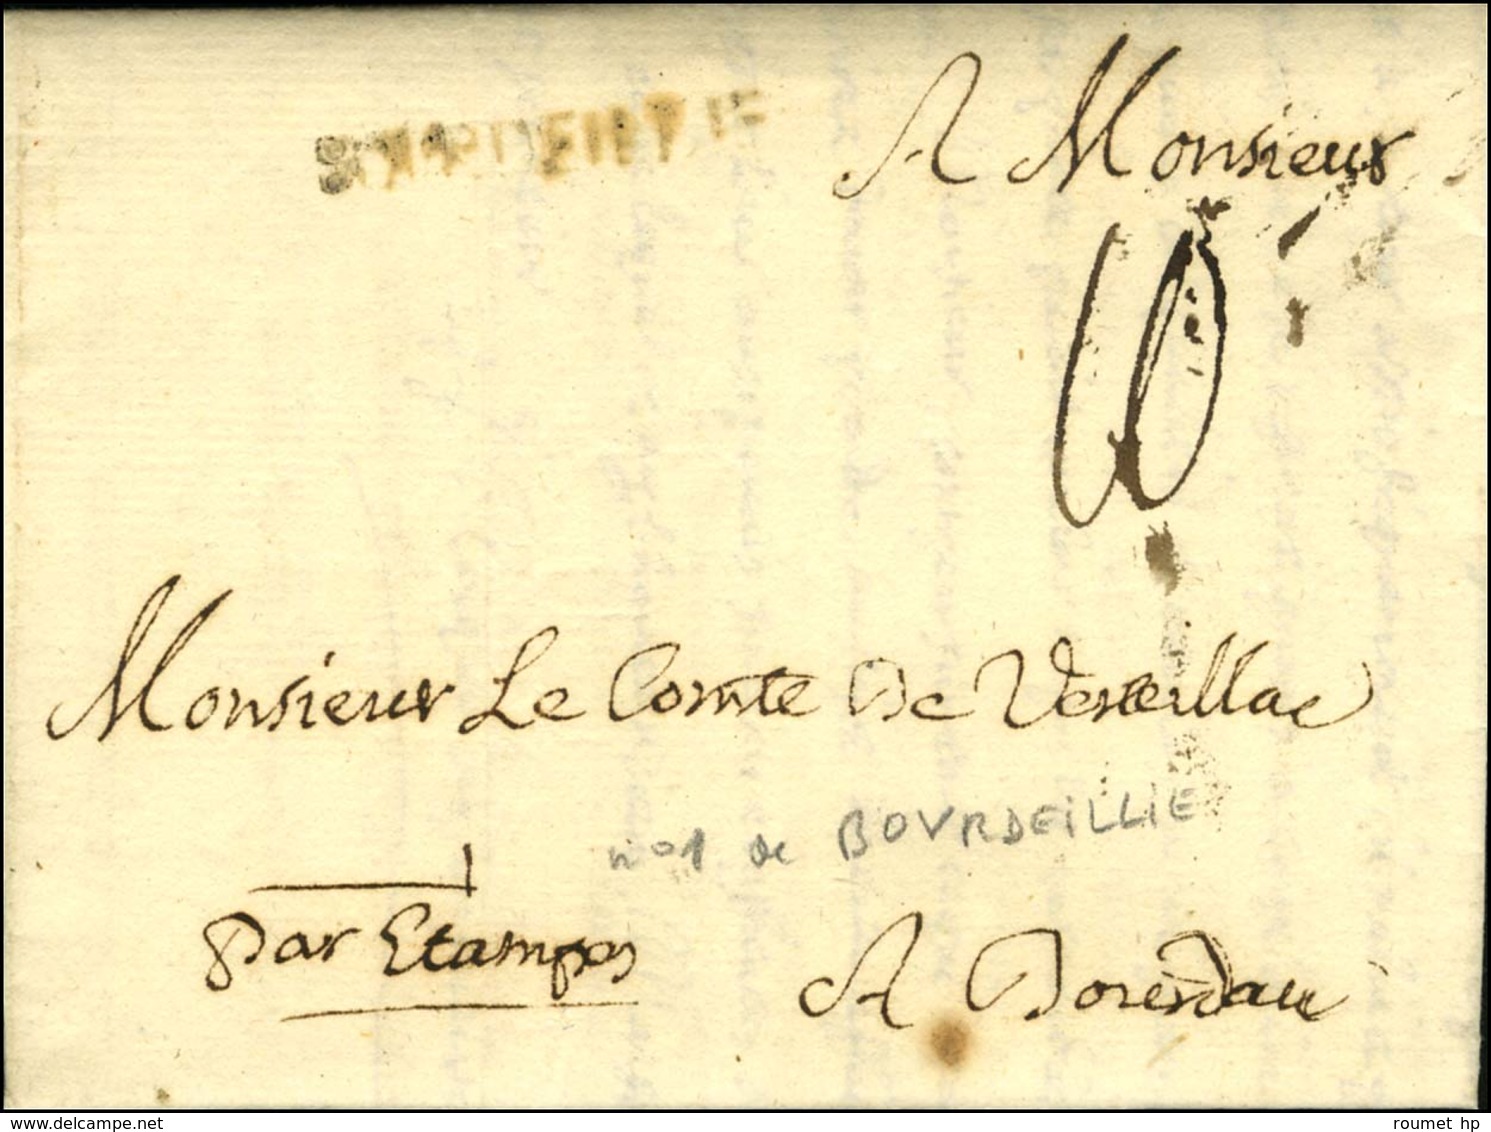 A Monsieur
Monsieur Le Comte De Verteillac
n°1 de BOVRDEILLIE
par Etampes
A Dourdan
delcampe.net
roumet hp